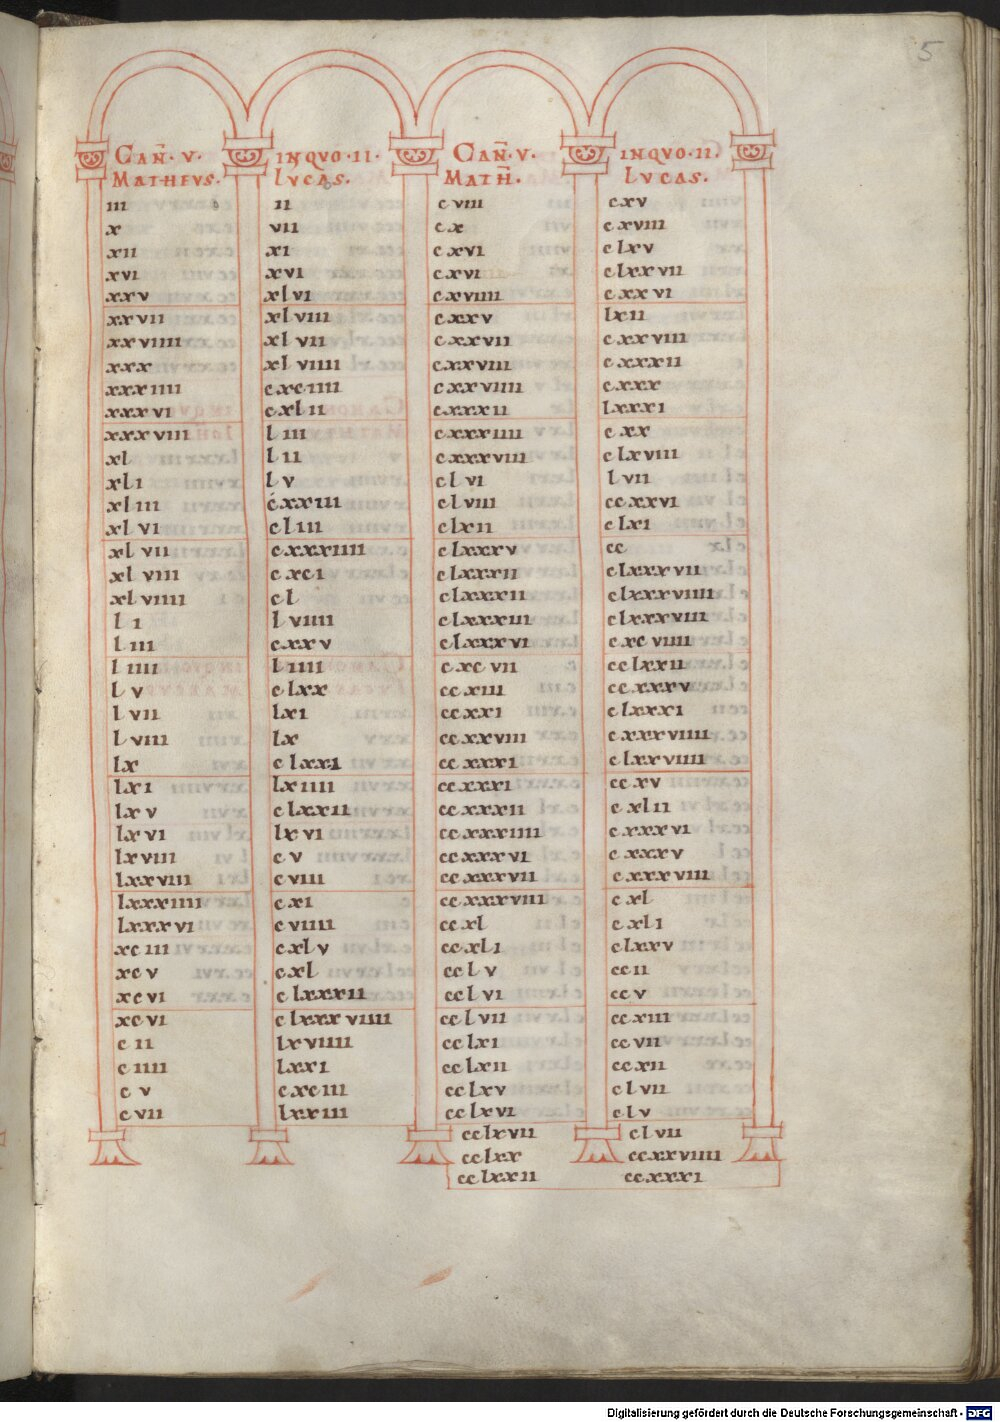 5
CAN̄·V· INQVO·II· CAN̄·V· INQVO·II·
MATHEVS· LVCAS· MATH̄· LVCAS·
iii ii cviii cxv
x vii cx cxviii
xii xi cxvi clxv
xvi xvi cxvi clxxvii
xxv xlvi cxviiii cxxvi
xxvii xlviii cxxv lxii
xxviiii xlvii cxxvii cxxviii
xxx xlviiii cxxviii cxxxii
xxxiiii cxciiii cxxviiii cxxx
xxxvi cxlii cxxxii lxxxi
xxxviii liii cxxxiiii cxx
xl lii cxxxviii clxviii
xli lv clvi lvii
xliii cxxiii clviii ccxxvi
xlvi cliii clxii clxi
xlvii cxxxiiii clxxxv cc
xlviii cxci clxxxii clxxxvii
xlviiii cl clxxxii clxxxviiii
li lviiii clxxxiii clxxxviii
liii cxxv clxxxvi cxcviiii
liiii liiii cxcvii cclxxii
lv clxx ccxiii ccxxxv
lvii lxi ccxxi clxxxi
lviii lx ccxxviii cxxxviiii
lx clxxi ccxxxi clxxviiii
lxi lxiiii ccxxxi ccxv
lxv clxxii ccxxxii cxlii
lxvi lxvi ccxxxiiii cxxxvi
lxviii cv ccxxxvi cxxxv
lxxviii cviii ccxxxvii cxxxviii
lxxxiiii cxi ccxxxviii cxl
lxxxvi cviiii ccxl cxli
xciii cxlv ccxli clxxv
xcv cxl cclv ccii
xcvi clxxxii cclvi ccv
xcvi clxxxviiii cclvii ccxiii
cii lxviiii cclxi ccvii
ciiii lxxi cclxii ccxii
cv cxciii cclxv clvii
cvii lxxiii cclxvi clv
cclxvii clvii
cclxx ccxxviiii
cclxxii ccxxxi
Digitalisierung gefördert durch die Deutsche Forschungsgemeinschaft - DFG